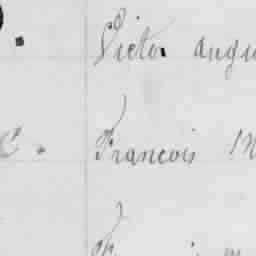 Victor augu
C. Francois M